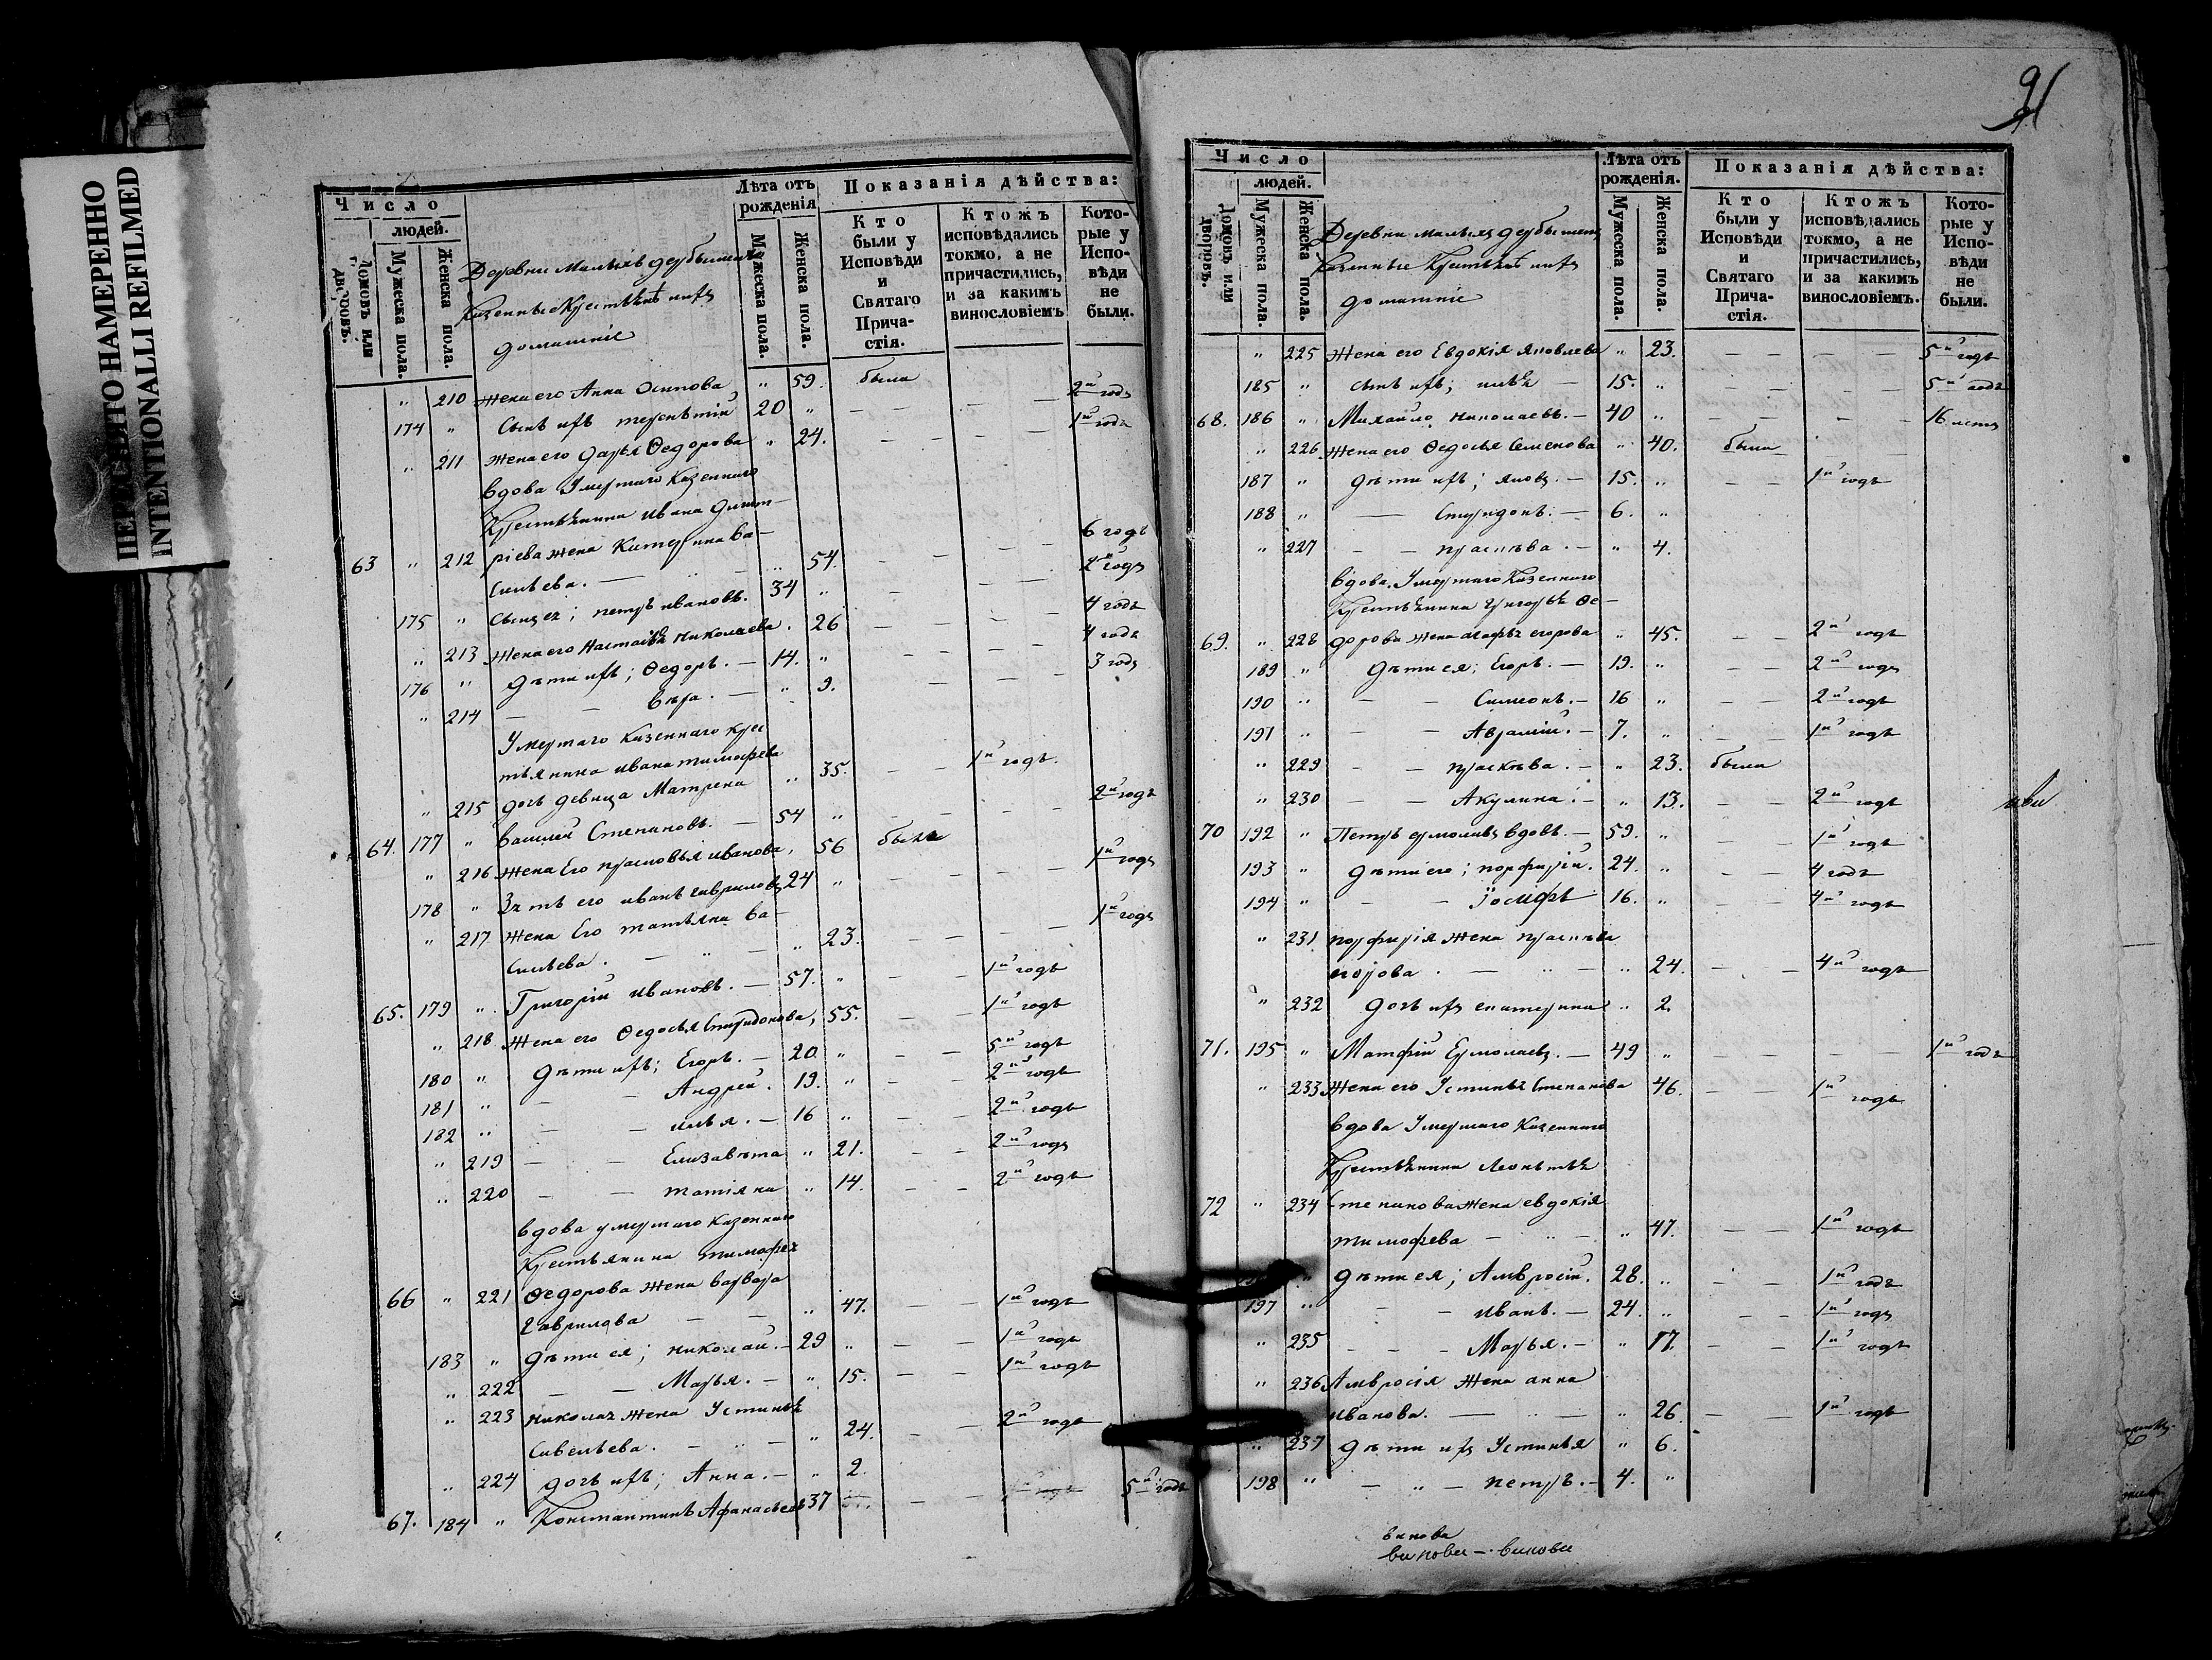 ПЕРЕСНЯТО НАМЕРЕННО
INTENTIONALLI REFILMED
Число
людей.
Домовъ или дворовъ.
Мужеска пола.
Женска пола.
Деревни Малыхъ дербышекъ
Казенные Крестьяне ихъ
домашніе
Лѣта отъ рожденія
Мужеска пола.
Женска пола.
Показанія дѣйства:
Кто были у Исповѣди и Святаго Причастія.
Ктожъ исповѣдались токмо, а не причастились, и за какимъ винословіемъ
Которые у Исповѣди не были.
" 210 Жена его Анна Осипова " 59. была
174 " Сынъ ихъ терентій 20 " — — — — 2й годъ
" 211 жена его дарья Ѳедорова " 24. — — — — 1й годъ
вдова Умершаго Казеннаго
Крестьянина Ивана Дмит-
63 " 212 ріева жена Катерина Ва-
сильева. — " — " 54. — — — 6 годъ
175 " Сынъ ея; петръ ивановъ. 34 " — — — 2й годъ
" 213 Жена его Настасья Николаева. 26 — — — — 4 годъ
176 " дѣти ихъ; Ѳедоръ. — 14. " — — — 4 годъ
" 214 — — вѣра. — " 9. — — — 3 годъ
Умершаго Казеннаго крес
тьянина ивана тимофеева
" 215 дочь девица Матрена " 35. — — 1й годъ.
64. 177 " Василей Степановъ. — 54 " — — — — 2й годъ
" 216 Жена Его прасковья иванова, 56 была
178 " Зять его иванъ гавриловъ 24 " — — — — 1й годъ
" 217 Жена Его татьяна ва-
сильева. — " — " 23. — — — — 1й годъ
65. 179 " Григорій ивановъ. — 57. " — — 1й годъ
" 218 Жена его Ѳедосья Спиридонова, 55. — — 1й годъ
180 " дѣти ихъ; Егоръ. — 20. " — — 5й годъ
181 " — — Андрей. 19. " — — 2й годъ
182 " — — илья. — 16 " — — 2й годъ
" 219 — — Елизавѣта " 21. — — 2й годъ
" 220 — — татіяна " 14. — — 2й годъ
вдова умершаго казеннаго
Крестьянина тимофея
66 " 221 Ѳедорова жена варвара
гаврилова — — " 47. — — 1й годъ
183 " дѣти ея; николай. — 29 " — — 1й годъ
" 222 — — Марья. — " 15. — — 1й годъ
" 223 николая жена Устинья
Савельева. — " — " 24. — — 2й годъ
" 224 дочь ихъ; Анна. — " 2.
67. 184 " Константинъ Афанасьевъ 37 — — 5й годъ
91
Число
людей.
Домовъ или дворовъ.
Мужеска пола.
Женска пола.
Деревни малыхъ дербышекъ
Казенные Крестьяне ихъ
домашніе
Лѣта отъ рожденія.
Мужеска пола.
Женска пола.
Показанія дѣйства:
Кто были у Исповѣди и Святаго Причастія.
Ктожъ исповѣдались токмо, а не причастились, и за какимъ винословіемъ.
Которые у Исповѣди не были.
" 225 Жена его Евдокія яковлева " 23. — — — — 5й годъ
185 " сынъ ихъ; илья — 15. " — — — — 5й годъ
68. 186 " Михайло николаевъ. — 40 " — — — — 16 летъ
" 226 Жена его Ѳедосья Семенова " 40. была
187 " дѣти ихъ; яковъ. — 15. " — — 1й годъ
188 " — Спиридонъ. — 6. "
" 227 — — прасковья. — " 4.
вдова. Умершаго Казеннаго
Крестьянина Григорья Ѳе-
69. " 228 дорова жена агафья егорова " 45. — — 2й годъ
189 " дѣти ея; Егоръ. — 19. " — — 2й годъ
190 " — — Симеонъ. — 16 " — — 2й годъ
191 " — — Аврамій. — 7. " — — 1й годъ
" 229 — — праскева. — " 23. была
" 230 — — Акулина. — " 13. — — 2й годъ
70 192 " Петръ ермолаевъ вдовъ. — 59. " — — 1й годъ
193 " дѣти его; порфирій. 24. " — — 4 годъ
194 " — — Іосифъ 16. " — — 4й годъ
" 231 порфирія жена праскева
егорова. — " — " 24. — — 4й годъ
" 232 дочь ихъ екатерина " 2.
71. 195 " Матфій Ермолаевъ. — 49 " — — — — 1й годъ
" 233 Жена его Устинья Степанова 46. — 1й годъ
вдова Умершаго Казеннаго
Крестьянина Леонтья
72 " 234 Степанова жена евдокія
тимофеева — " — " 47. — — 1й годъ
" дѣти ея; Амвросій. 28. " — — 1й годъ
197 " — — иванъ. — 24. " — — 1й годъ
" 235 — — Марья. — " 17. — — 1й годъ
" 236 Амвросія жена анна
иванова. — " — " 26. — — 1й годъ
" 237 дѣти ихъ Устинья " 6.
198 " — " — петръ. — 4. "